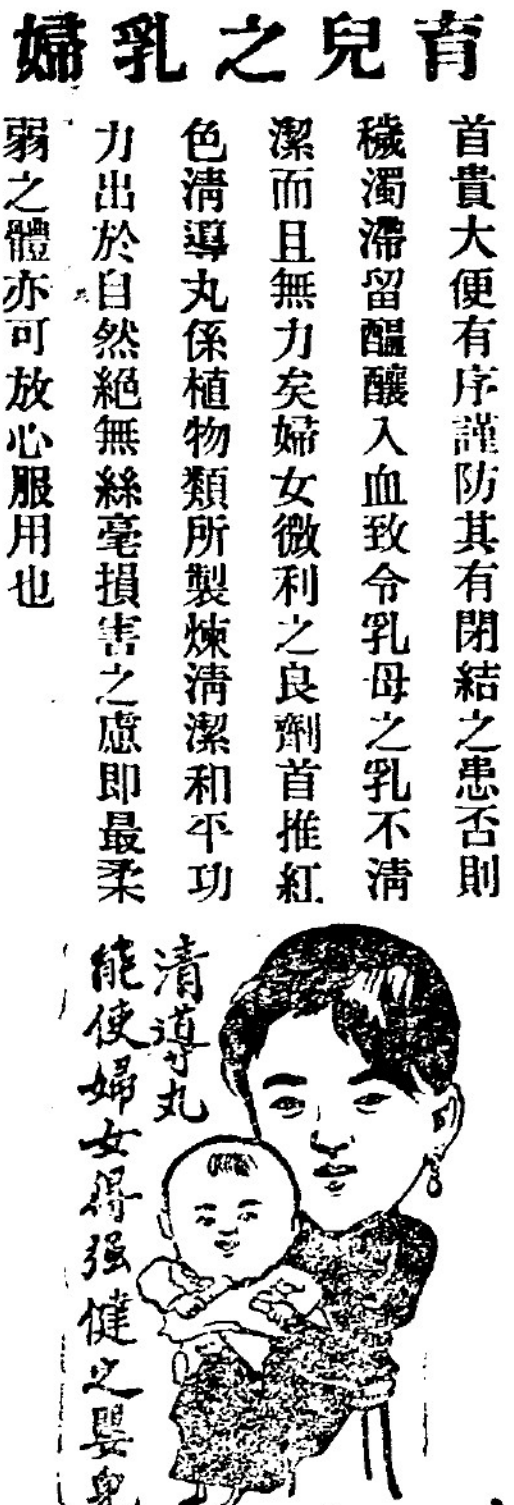 育兒之乳婦
首貴大便有序謹防其有閉結之患否則
穢濁滯留醞釀入血致令乳母之乳不清
潔而且無力矣婦女微利之良劑首推紅
色清導丸係植物類所製煉清潔和平功
力出於自然絕無絲毫損害之慮即最柔
弱之體亦可放心服用也
清導丸
能使婦女得强健之嬰兒